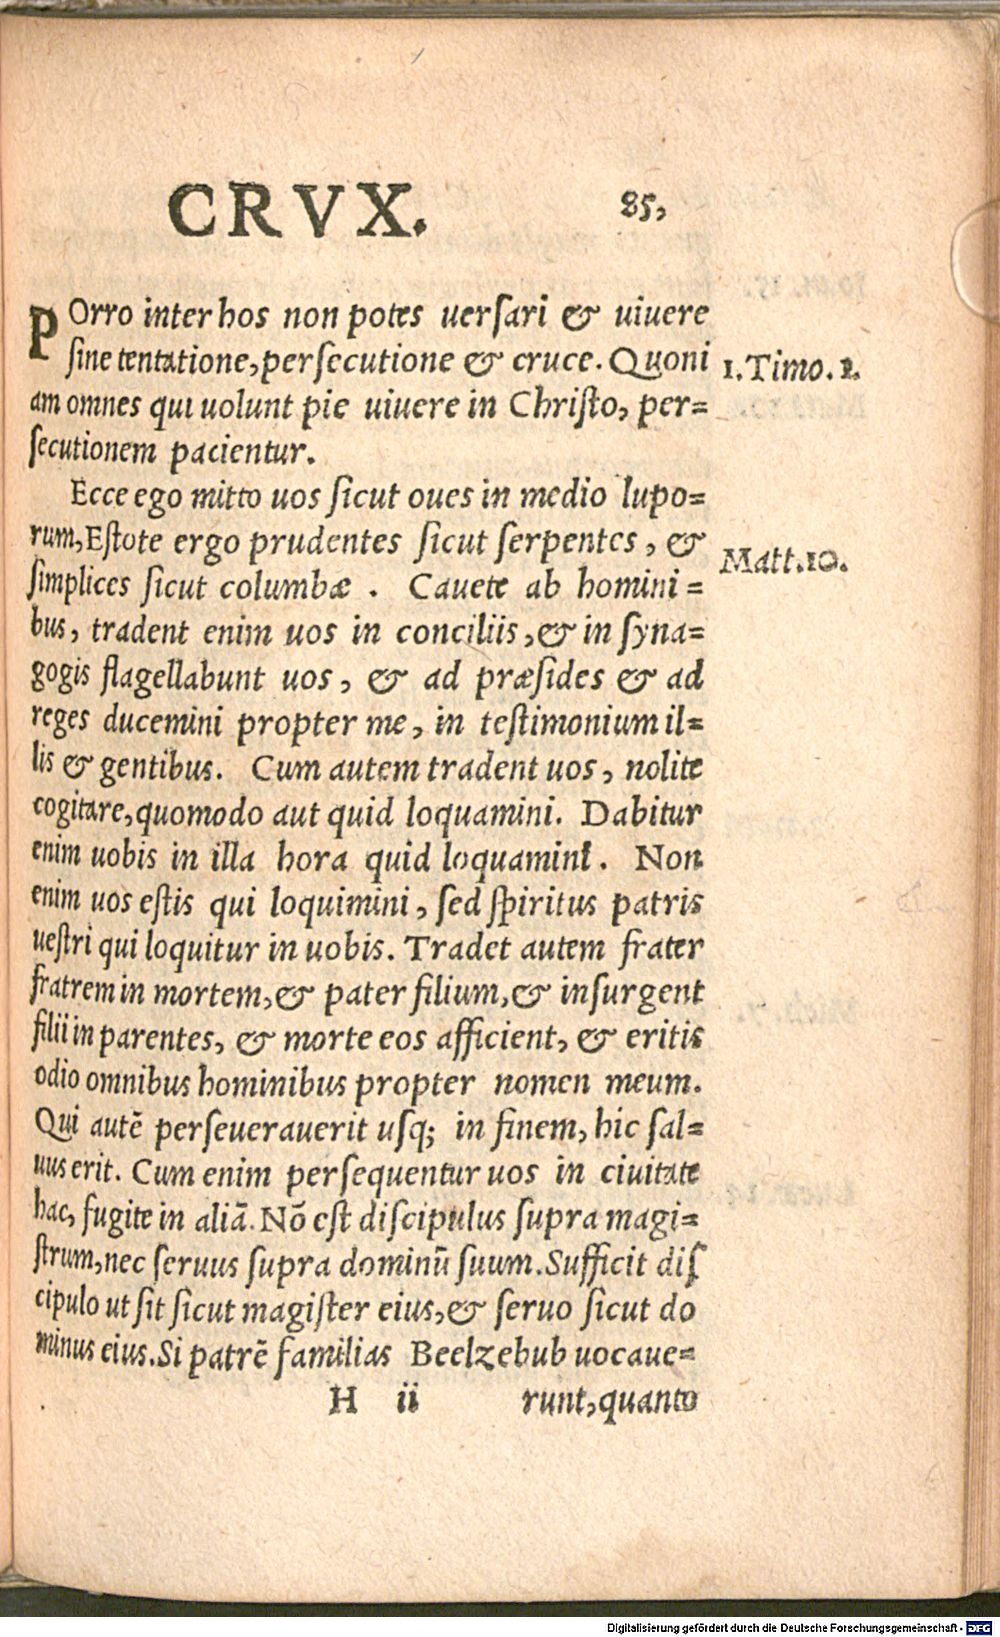 CRVX. 85,
POrro inter hos non potes uersari & uiuere
sine tentatione, persecutione & cruce. Quoni 1. Timo. 2.
am omnes qui uolunt pie uiuere in Christo, per=
secutionem pacientur.
Ecce ego mitto uos sicut oues in medio lupo=
rum, Estote ergo prudentes sicut serpentes, &
simplices sicut columbæ. Cauete ab homini= Matt. 10.
bus, tradent enim uos in conciliis, & in syna=
gogis flagellabunt uos, & ad præsides & ad
reges ducemini propter me, in testimonium il=
lis & gentibus. Cum autem tradent uos, nolite
cogitare, quomodo aut quid loquamini. Dabitur
enim uobis in illa hora quid loquamini. Non
enim uos estis qui loquimini, sed spiritus patris
uestri qui loquitur in uobis. Tradet autem frater
fratrem in mortem, & pater filium, & insurgent
filii in parentes, & morte eos afficient, & eritis
odio omnibus hominibus propter nomen meum.
Qui autē perseuerauerit usq; in finem, hic sal=
uus erit. Cum enim persequentur uos in ciuitate
hac, fugite in aliā. Nō est discipulus supra magi=
strum, nec seruus supra dominū suum. Sufficit dis
cipulo ut sit sicut magister eius, & seruo sicut do
minus eius. Si patrē familias Beelzebub uocaue=
H ii runt, quanto
Digitalisierung gefördert durch die Deutsche Forschungsgemeinschaft - DFG